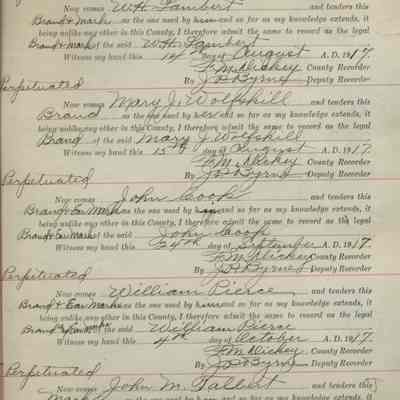 Now comes W. H. Lambert and tenders this
Brand & Mark as the one used by him and so far as my knowledge extends, it
being unlike any other in this County, I therefore admit the same to record as the legal
Brand & Mark of the said W. H. Lambert
Witness my hand this 14 day of August A. D. 1917.
F. M. Hickey County Recorder
By J. D. Byrne Deputy Recorder
Perpetuated
Now comes Mary J. Wolfskill and tenders this
Brand as the one used by her and so far as my knowledge extends, it
being unlike any other in this County, I therefore admit the same to record as the legal
Brand of the said Mary J. Wolfskill
Witness my hand this 15th day of August A. D. 1917.
F. M. Hickey County Recorder
By J. D. Byrne Deputy Recorder
Perpetuated
Now comes John Cook and tenders this
Brand & Ear Mark as the one used by him and so far as my knowledge extends, it
being unlike any other in this County, I therefore admit the same to record as the legal
Brand & Ear Mark of the said John Cook
Witness my hand this 24th day of September A. D. 1917.
F. M. Hickey County Recorder
By J. D. Byrne Deputy Recorder
Perpetuated
Now comes William Pierce and tenders this
Brand & Ear Mark as the one used by him and so far as my knowledge extends, it
being unlike any other in this County, I therefore admit the same to record as the legal
Brand & Ear marks of the said William Pierce
Witness my hand this 4th day of October A. D. 1917.
F. M. Hickey County Recorder
By J. D. Byrne Deputy Recorder
Perpetuated
Now comes John M. Talbert and tenders this
Mark